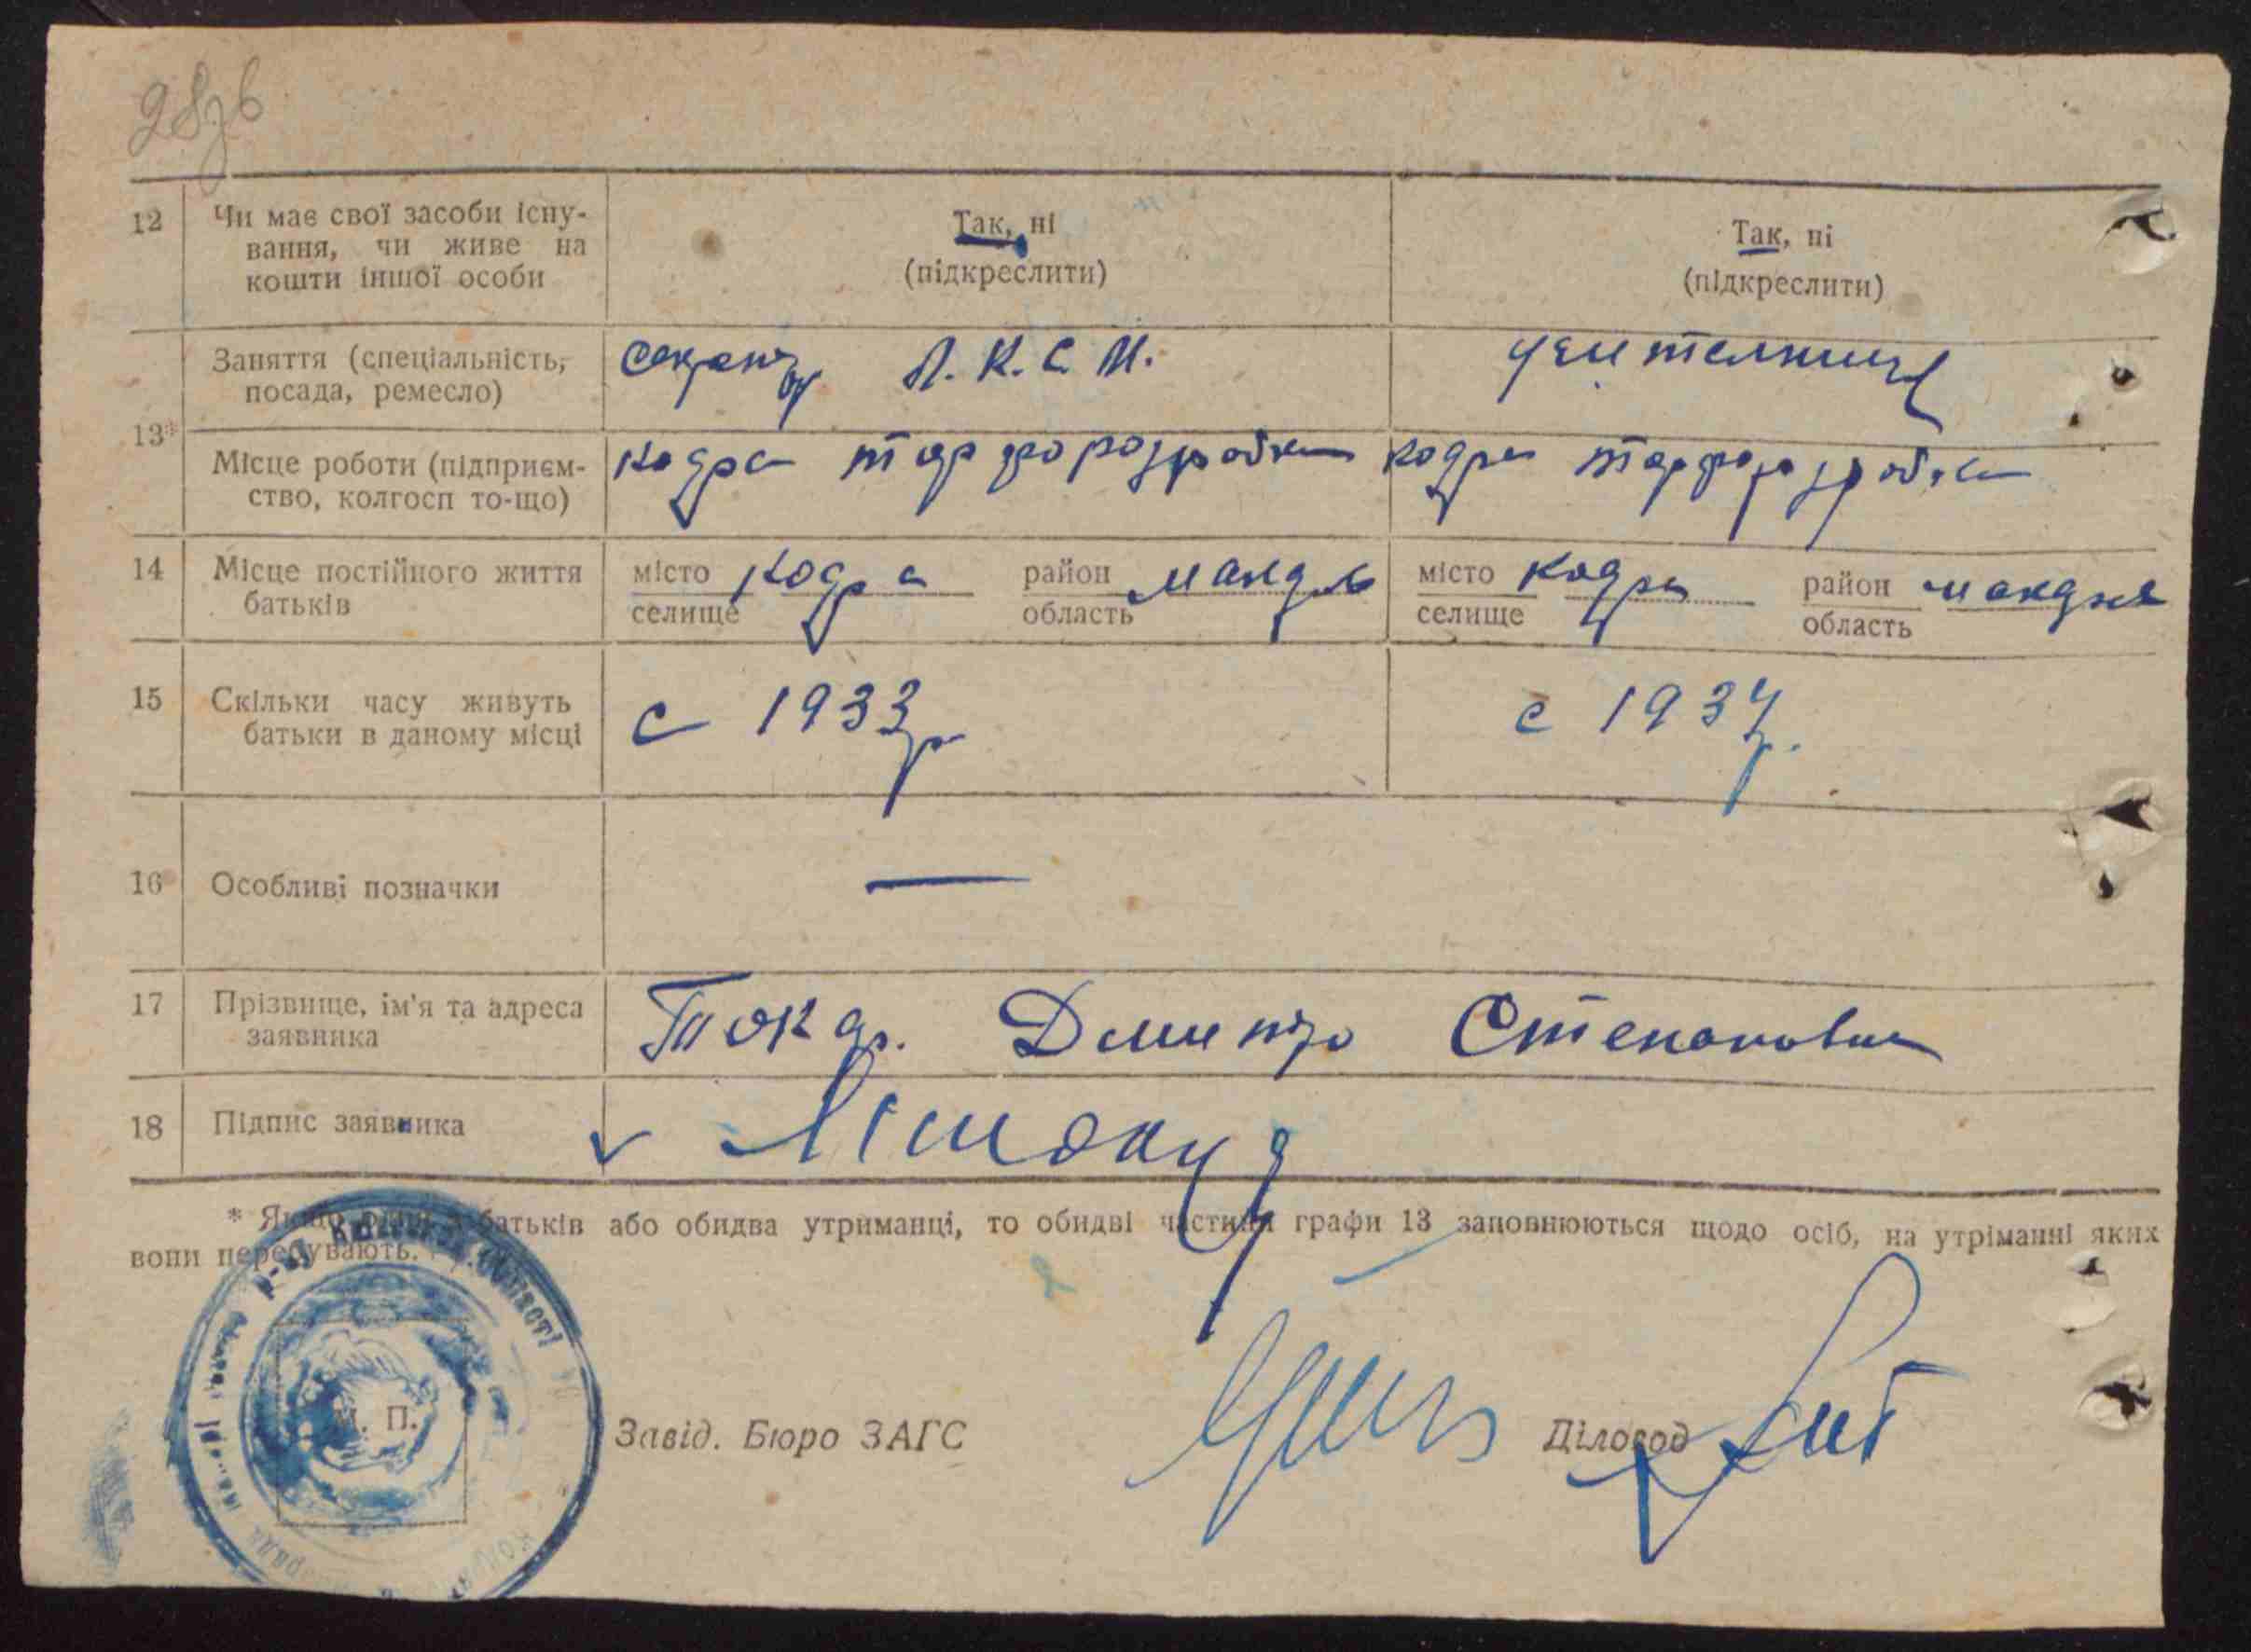 28зв
12 Чи має свої засоби існу-
вання, чи живе на
кошти іншої особи
Так, ні
(підкреслити)
Так, ні
(підкреслити)
13*
Заняття (спеціальність,
посада, ремесло)
Л.К.С.М.
учителниця
Місце роботи (підприєм-
ство, колгосп то-що)
Кодра торфорозробки
Кодра торфорозробки
14 Місце постійного життя
батьків
місто Кодра район
селище область
місто Кодра район
селище область
15 Скільки часу живуть
батьки в даному місці
с 1933р
с 1937р.
16 Особливі позначки
—
17 Прізвище, ім'я та адреса
заявника
Токар. Дмитро Степанович
18 Підпис заявника
* Якщо один з батьків або обидва утриманці, то обидві частини графи 13 заповнюються щодо осіб, на утріманні яких
вони перебувають.
р-ну Київської області
М. П.
Завід. Бюро ЗАГС
Діловод